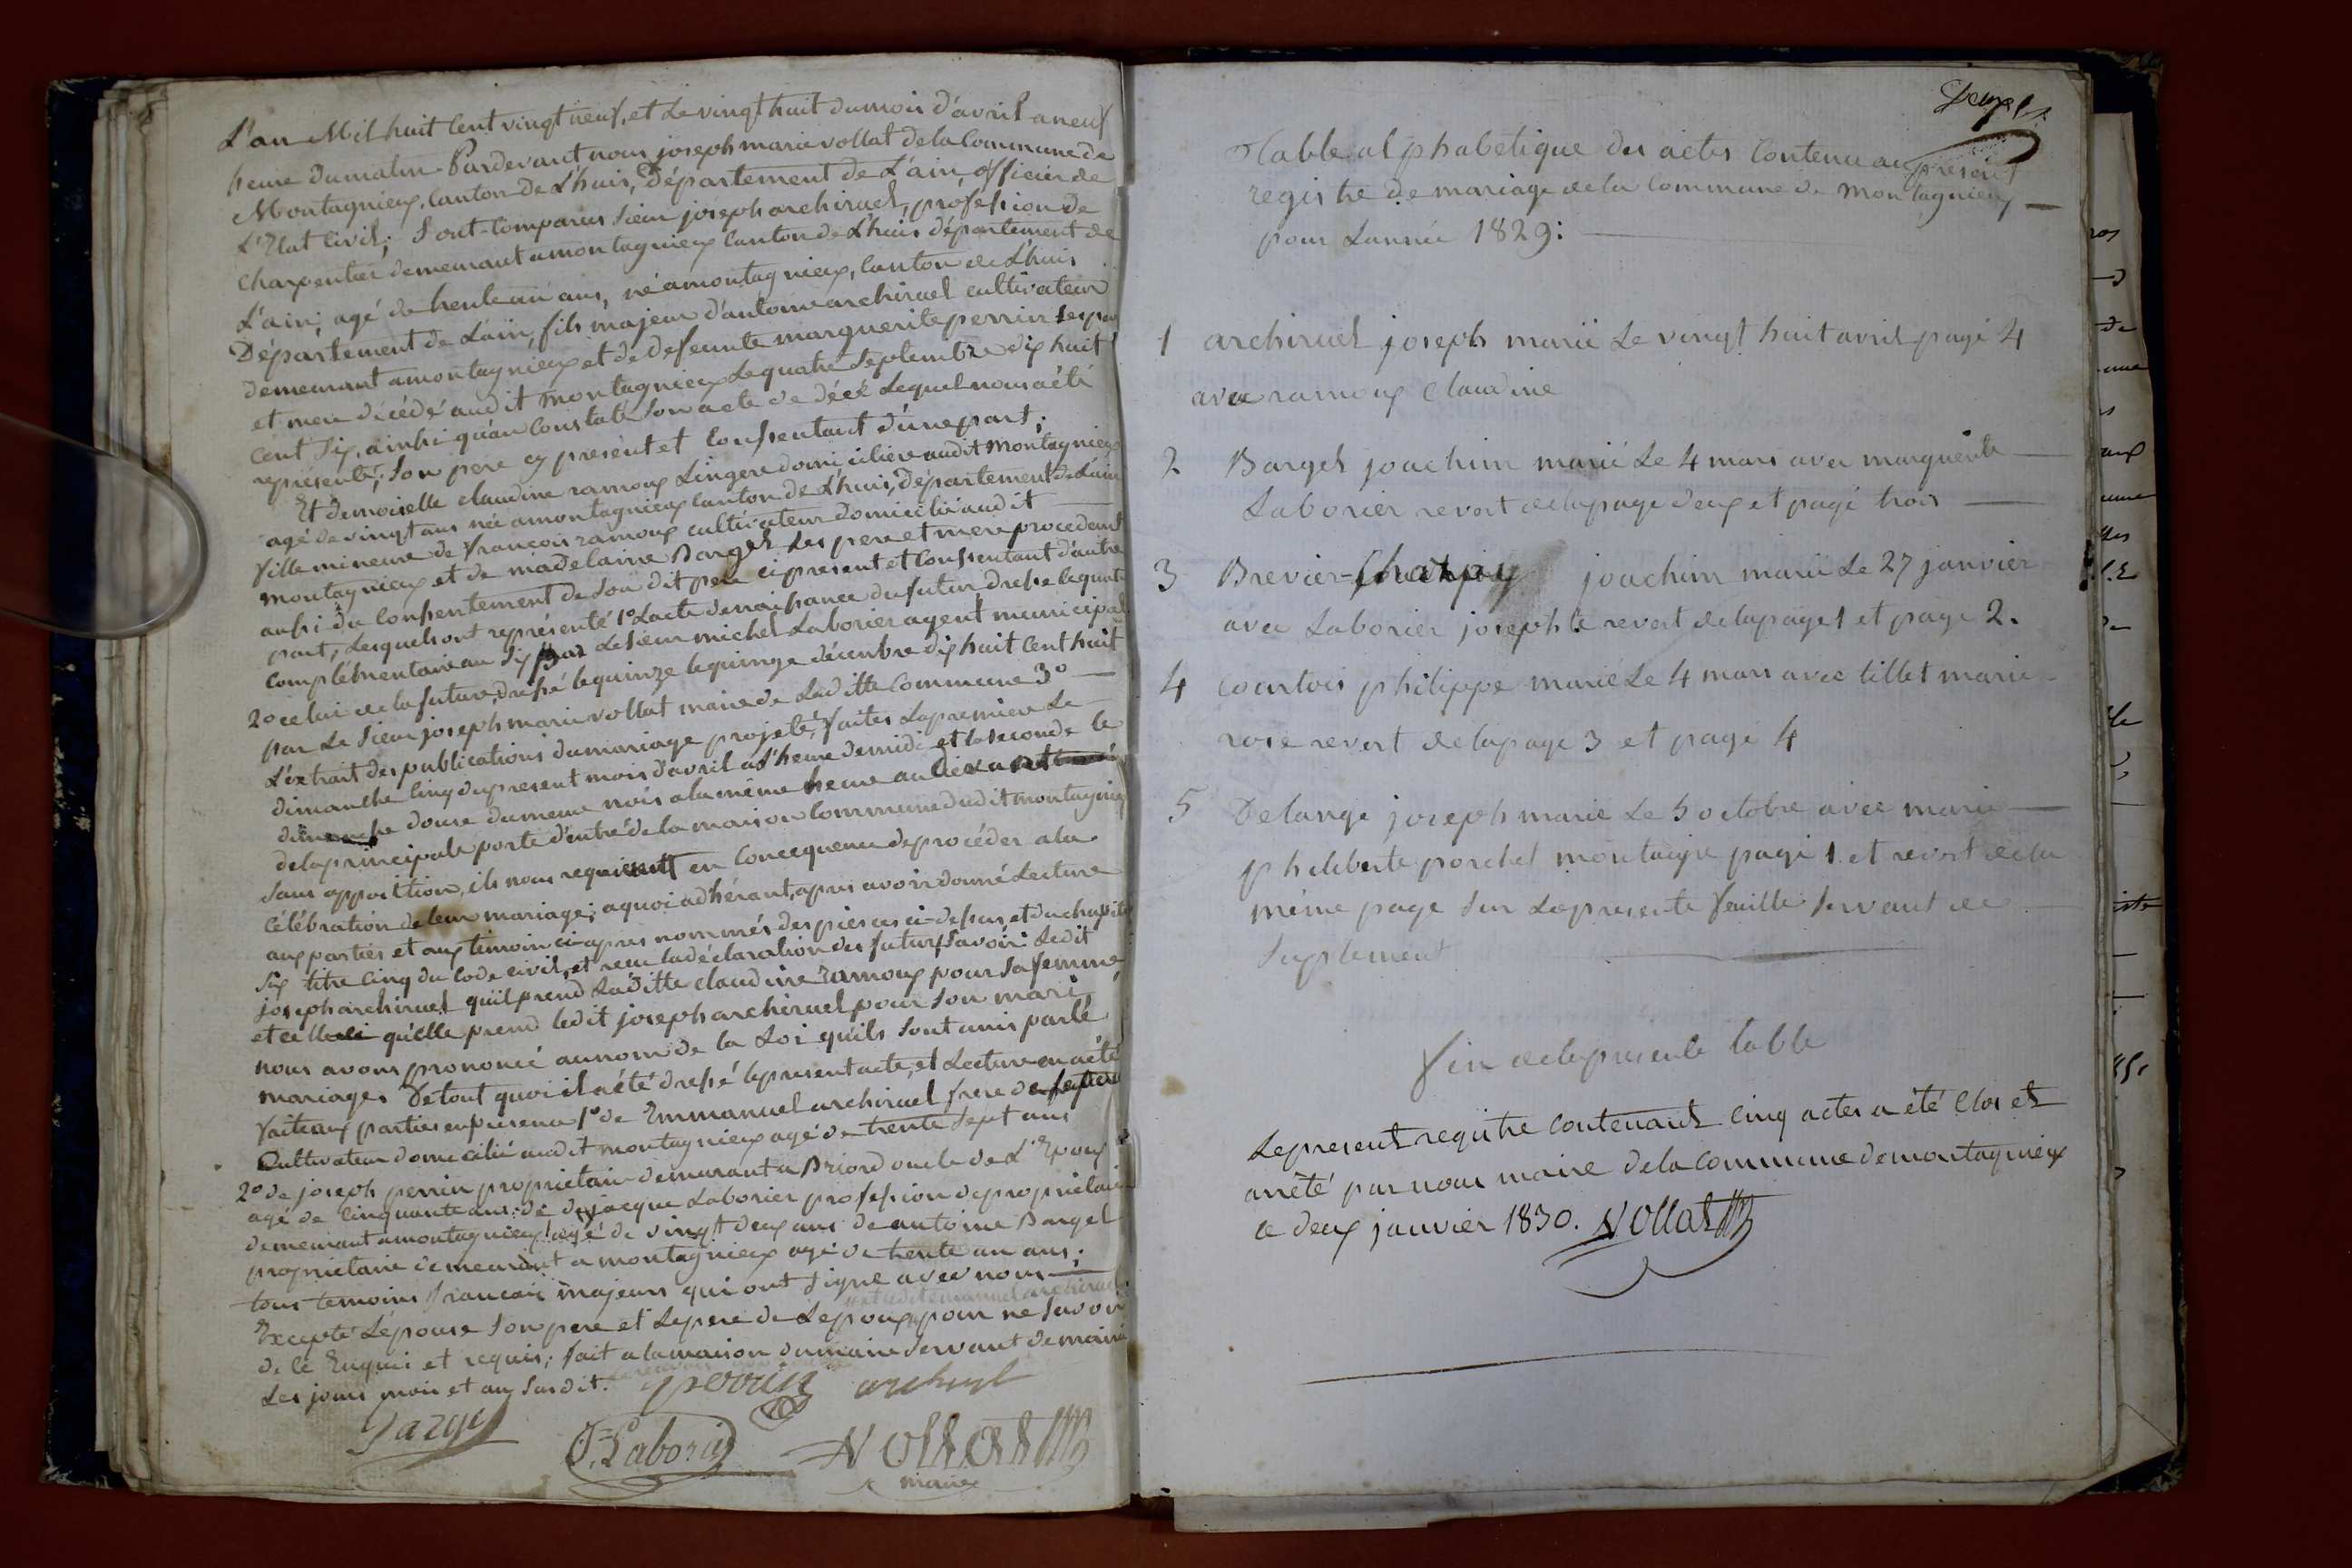 L'an Mil huit Cent vingt neuf, et Le vingt huit du mois d'avril a neuf
heure du matin Pardevant nous joseph marie vollat de la Commune de
Montagnieux, Canton de L'huis, Département de L'ain, officier de
L'Etat Civil; Sont Comparus Sieur joseph archiruel, profession de
Charpentier demeurant a montagnieux Canton de L'huis département de
L'ain; agé de trente un ans, né a montagnieux, Canton de L'huis
Département de L'ain, fils majeur d'antoine archiruel cultivateur
demeurant a montagnieux et de defeunte marguerite perrin ses per
et mere décédé audit montagnieux Le quatre Septembre dix huit
Cent Six, ainhi qu'au Constate Son acte de décé Lequel nous a été
représenté; Son pere cy présent et Consentant d'une part;
Et demoiselle claudine ramoux Lingere domiciliere audit montagnieux
agé de vingt ans née a montagnieux Canton de L'huis, département de L'ain
fille mineure de françois ramoux cultivateur domicilié audit
montagnieux et de madelaine Bargel Ses pere et mere procedant
aussi du Consentement de Son dit pere ci present et Consentant d'autre
part, Lesquels ont représenté 1º L'acte de naissance du futur dressé le quatre
Complémentaire an Six par Le Sieur michel Laborier agent municipal
2º celui de la future, dressé le quinze le quinze décembre dix huit Cent huit
par Le Sieur joseph marie vollat maire de Laditte Commune 3º
L'extrait des publications du mariage projeté, faites La premiere Le
dimanche Cinq du present mois d'avril a L'heure de midi et la seconde le
dimanche douze du meme mois a la même heure au devant
de la principale porte d'entré de la maison Commune dudit montagnieux
Sans opposition, ils nous requierent en Concequence de procéder a la
Célébration de leur mariage; a quoi adhérant, apres avoir donné Lecture
aux parties et aux témoin ci-apres nommés des pieces ci-dessus, et du chapitre
Six titre Cinq du Code civil, et recu la déclaration des futurs Savoir: Ledit
joseph archiruel qu'il prend Laditte claudine Ramoux pour Sa femme
et celle ci qu'elle prend ledit joseph archiruel pour Son mari
nous avons prononcé au nom de la Loi qu'ils Sont unis par le
mariage. De tout quoi il a été dressé le present acte, et Lecture en a été
faite aux parties en presence 1º de Emmanuel archiruel frere de
Cultivateur domicilié audit montagnieux agé de trente Sept ans
2º de joseph perrin propriétaire demeurant a Briord oncle de L'Epoux
agé de Cinquante ans: de jacque Laborier profession de propriétaire
demeurant a montagnieux agé de vingt deux ans de antoine Bargel
proprietaire demeurant a montagnieux agé de trente un ans;
tous temoins francais majeurs qui ont Signé avec nous
et ledit emanuel archiruel
Excepté L'épouse Son pere et Le pere de L'epoux pour ne Savoir
de ce Enquis et requis; fait a la maison du maire Servant de mairie
Les jours mois et an Susdit.
perrin archiruel
Bargel
J. Laborier Vollat
maire
Deux
Table alphabetique des actes Contenu au present
registre de mariage de la Commune de montagnieux
pour L'année 1829:
1 archiruel joseph marié Le vingt huit avril page 4
avec ramoux claudine
2 Bargel joachim marié Le 4 mars avec marguerite
Laborier revert de la page deux et page trois
3 Brevier-Charpy joachim marié Le 27 janvier
avec Laborier josephte revert de la page 1 et page 2.
4 Courtois philippe marié Le 4 mars avec tillet marie
rose revert de la page 3 et page 4
5 Delange joseph marié Le 5 octobre avec marie
philiberte porchet montaigre page 1 et revert de la
même page Sur La presente feuille Servant de
Suplement
fin de la presente table
Le present registre Contenant Cinq actes a été Clos et
arrêté par nous maire de la Commune de montagnieux
ce deux janvier 1830. Vollat